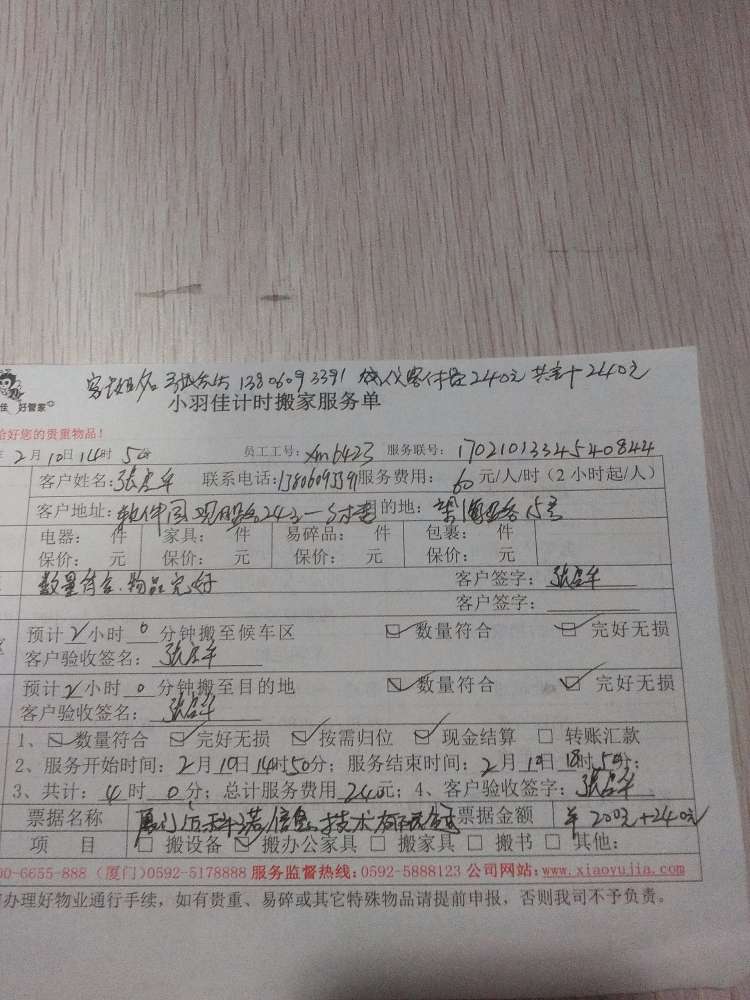 客户姓名 13806093391 240元 共计240元
佳 好管家
小羽佳计时搬家服务单
给好您的贵重物品！
年 2月10日14时50分 员工工号：xm6423 服务联号：1702101334540844
客户姓名：张 联系电话：13806093391 服务费用：60元/人/时（2小时起/人）
客户地址：软件园观日路24号 目的地：望海路15号
电器： 件 家具： 件 易碎品： 件 包裹： 件
保价： 元 保价： 元 保价： 元 保价： 元
数量符合、物品完好 客户签字：张
客户签字：
预计2小时0分钟搬至候车区 数量符合 完好无损
客户验收签名：张
预计2小时0分钟搬至目的地 数量符合 完好无损
客户验收签名：张
1、数量符合 完好无损 按需归位 现金结算 转账汇款
2、服务开始时间：2月10日14时50分；服务结束时间：2月10日18时50分；
3、共计：4时0分；总计服务费用240元；4、客户验收签字：张
票据名称 厦门 信息技术有限公司 票据金额 ¥200元+240元
项 目 搬设备 搬办公家具 搬家具 搬书 其他：
00-6655-888（厦门）0592-5178888 服务监督热线：0592-5888123 公司网站：www.xiaoyujia.com
办理好物业通行手续，如有贵重、易碎或其它特殊物品请提前申报，否则我司不予负责。